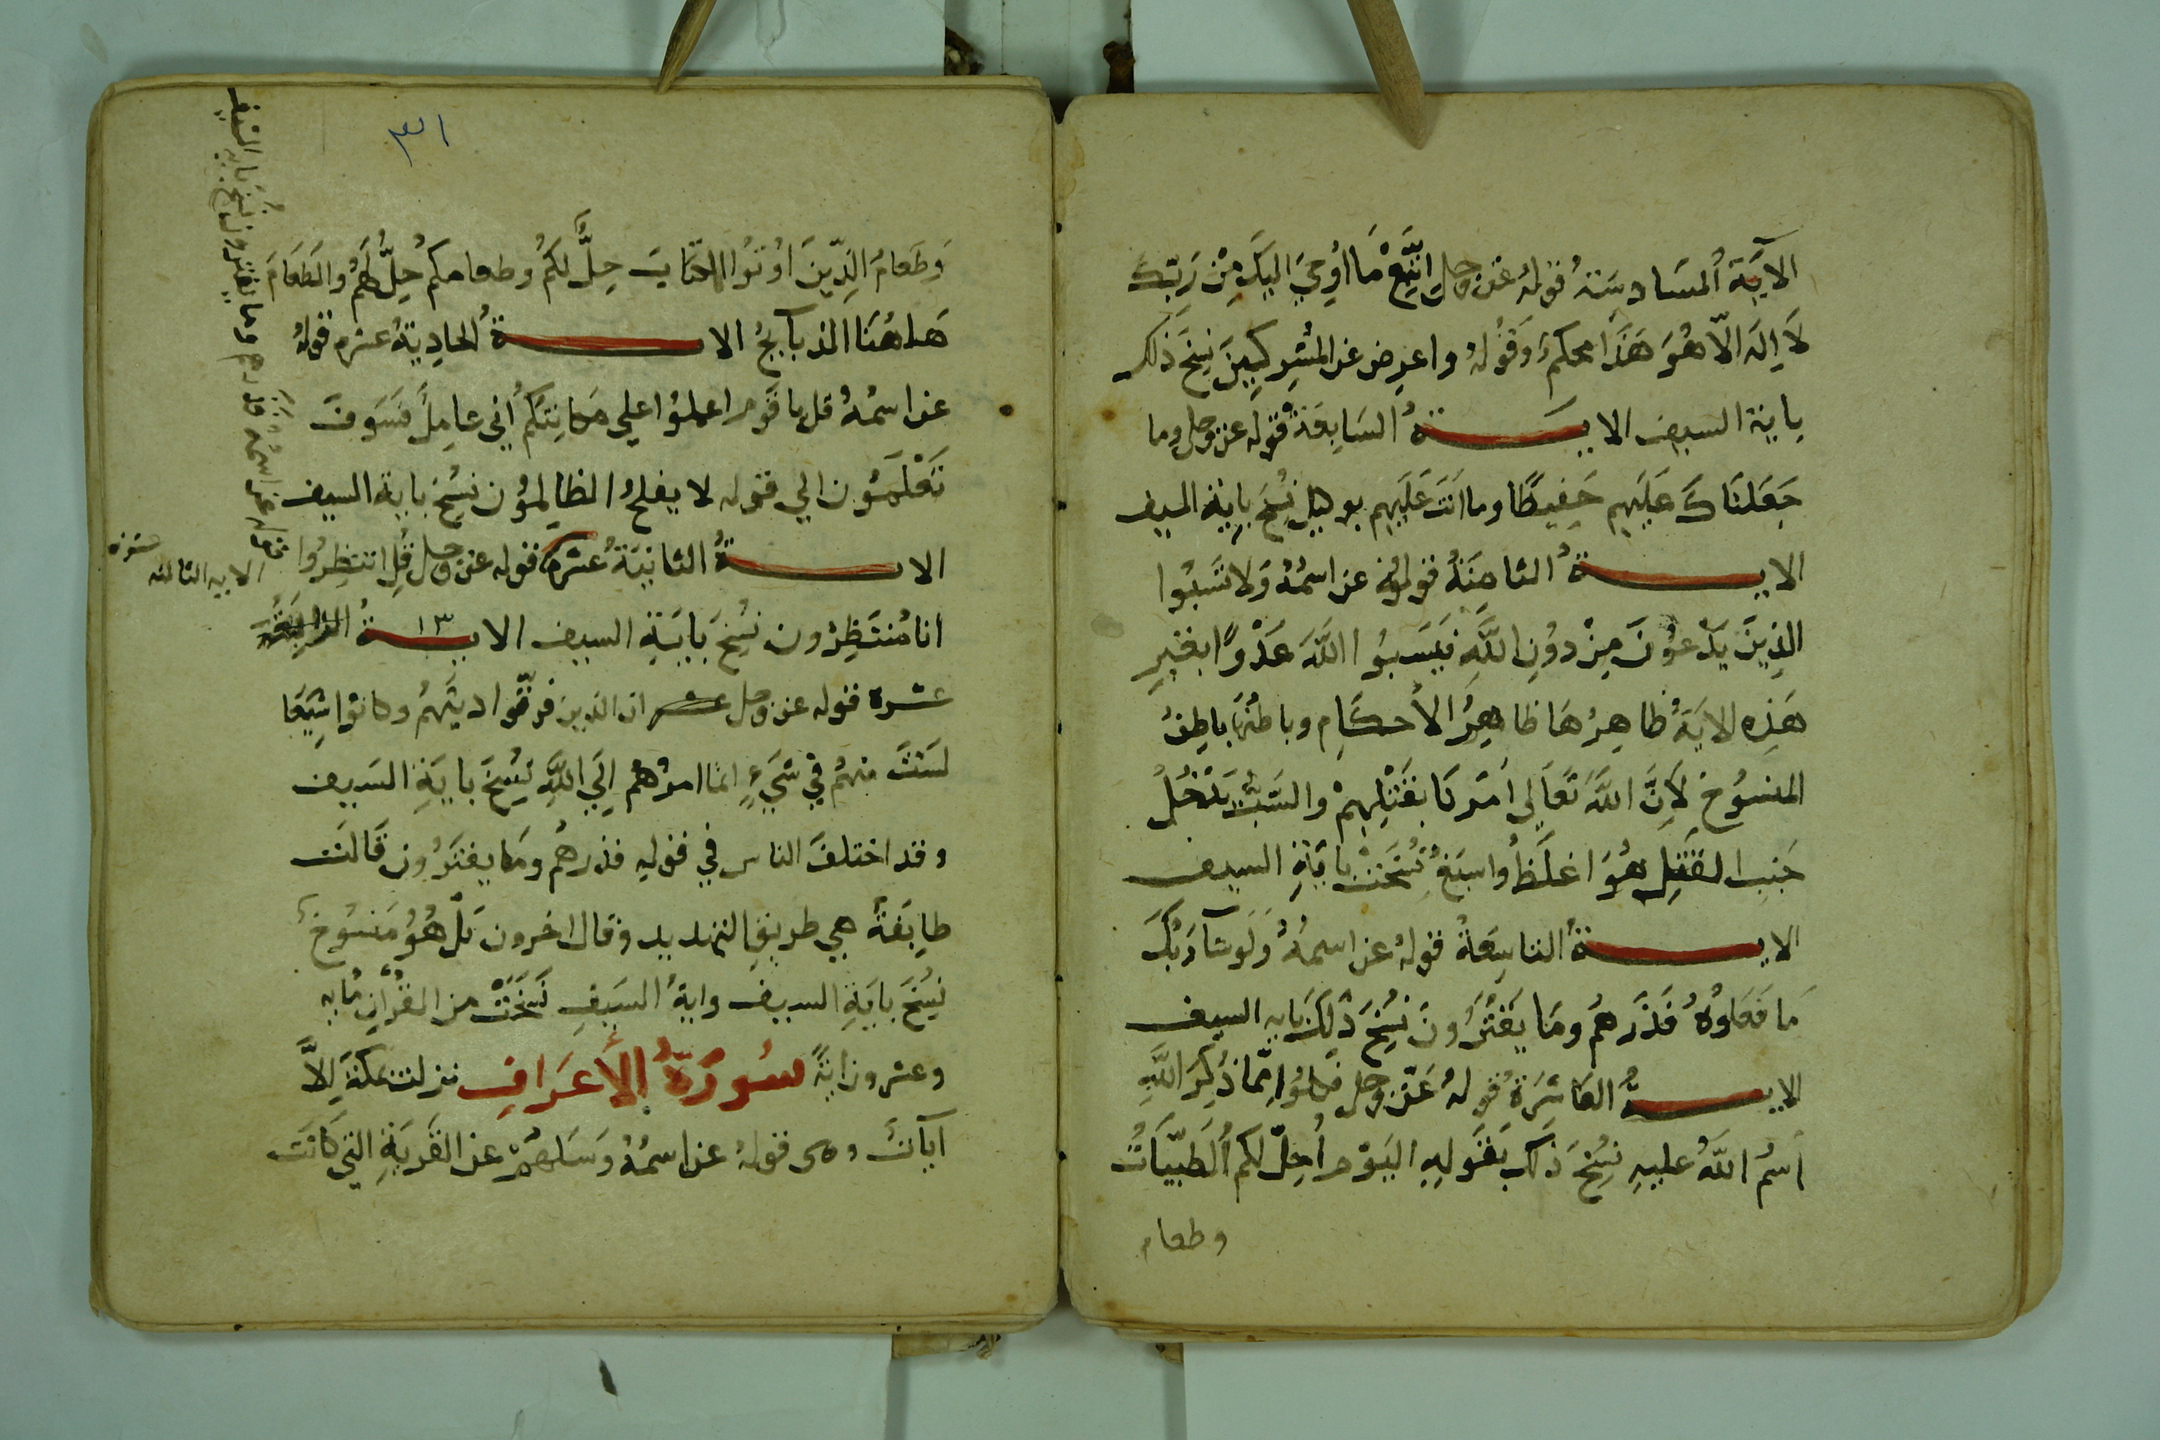 الاية السادسة قوله عز وجل اتبع ما اوحي اليك من ربك
لا اله الا هو هذا محكم وقوله واعرض عن المشركين نسخ ذلك
باية السيف الايـة السابعة قوله عز وجل وما
جعلناك عليهم حفيظا وما انت عليهم بوكيل نسخ باية السيف
الايـة الثامنة قوله عز اسمه ولا تسبوا
الذين يدعون من دون الله فيسبوا الله عدوا بغير
هذه الاية ظاهرها ظاهر الاحكام وباطنها باطن
المنسوخ لان الله تعالى امرنا بقتلهم والسب يدخل
جنب القتل هو اغلظ نسخت باية السيف
الايـة التاسعة قوله عز اسمه ولو شا ربك
ما فعلوه فذرهم وما يفترون نسخ ذلك بايه السيف
الايـة العاشرة قوله عز وجل فكلوا مما ذكر الله
اسم الله عليه نسخ ذلك بقوله اليوم احل لكم الطيبات
وطعام
٣١
وطعام الذين اوتوا الكتاب حل لكم وطعامكم حل لهم والطعام
هاهنا الذبايح الايـة الحادية عشره قوله
عز اسمه قل يا قوم اعملوا على مكانتكم اني عامل فسوف
تعلمون الي قوله لا يفلح الظالمون نسخ باية السيف
الايـة الثانية عشرة قوله عز وجل قل انتظروا
انا منتظرون نسخ باية السيف الايـة ١٣
عشره قوله عز وجل ان الذين فرقوا دينهم وكانوا شيعا
لست منهم في شيء انما امرهم الي الله نسخ باية السيف
وقد اختلف الناس في قوله فذرهم وما يفترون قالت
طايفة هي طريق التهديد وقال اخرون بل هو منسوخ
نسخ باية السيف واية السيف نسخت من القران مايه
وعشرون اية سورة الاعراف نزلت بمكة الا
آيات وهى قوله عز اسمه وسلهم عن القرية التي كانت
الايه الثالثه عشره
قوله عز اسمه فذرهم وما يفترون نسخ باية السيف